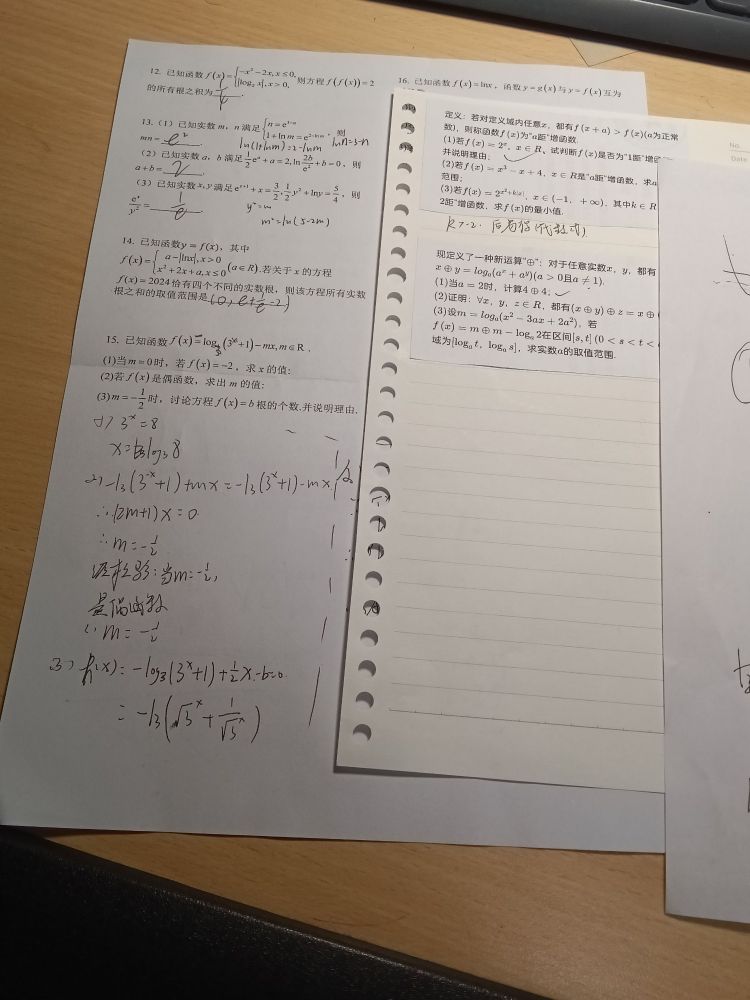 12. 已知函数 f(x)={-x²-2x, x≤0, |log₂x|, x>0, 则方程 f(f(x))=2
的所有根之积为
16. 已知函数 f(x)=lnx，函数 y=g(x) 与 y=f(x) 互为
13.（1）已知实数 m，n 满足 {n=e^
1+ln m=e^ 则
mn= e²
ln(1+lnm)=2-lnm lnn=3-n
（2）已知实数 a，b 满足 ½eᵃ+a=2, ln 2b/e²+b=0，则
a+b= 2
（3）已知实数 x, y 满足 eˣ⁺¹+x=3/2, ½y²+lny=5/4，则
eˣ/y²= 1/e
y²=m
m²=ln(5-2m)
14. 已知函数 y=f(x)，其中
f(x)={a-|lnx|, x>0 x²+2x+a, x≤0 (a∈R).若关于 x 的方程
f(x)=2024 恰有四个不同的实数根，则该方程所有实数
根之和的取值范围是 (0, e+1/e-2)
15. 已知函数 f(x)=-log₃(3ˣ+1)-mx, m∈R.
(1)当 m=0 时，若 f(x)=-2，求 x 的值:
(2)若 f(x) 是偶函数，求出 m 的值:
(3) m=-½ 时，讨论方程 f(x)=b 根的个数.并说明理由.
(1) 3ˣ=8
x=log₃8
2) -l₃(3⁻ˣ+1)+mx=-l₃(3ˣ+1)-mx
∴(2m+1)x=0
∴m=-½
当m=-½,
是偶函数
∴m=-½
(3) h(x)=-log₃(3ˣ+1)+½x-b=0
=-l₃(√3ˣ+1/√3ˣ)
定义：若对定义域内任意x，都有f(x+a)>f(x)(a为正常
数)，则称函数f(x)为“a距”增函数.
(1)若f(x)=2ˣ，x∈R，试判断f(x)是否为“1距”增
并说明理由；
(2)若f(x)=x³-¼x+4，x∈R是“a距”增函数，求a
范围；
(3)若f(x)=2^(x²+k|x|)，x∈(-1，+∞)，其中k∈R
2距”增函数，求f(x)的最小值.
k>-2.
现定义了一种新运算“⊕”：对于任意实数x，y，都有
x⊕y=logₐ(aˣ+aʸ)(a>0且a≠1).
(1)当a=2时，计算4⊕4；
(2)证明：∀x，y，z∈R，都有(x⊕y)⊕z=x⊕
(3)设m=logₐ(x²-3ax+2a²)，若
f(x)=m⊕m-logₐ2在区间[s,t](0<s<t<
域为[logₐt，logₐs]，求实数a的取值范围.
No.
Date